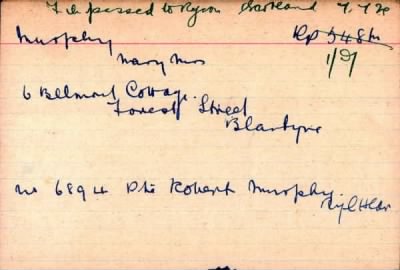 passed to Ryson Scotland 7.7.20
Murphy
Mary Mrs
6 Belmont Cottage
Forest Street
Blantyre
No 6894 Pte Robert Murphy